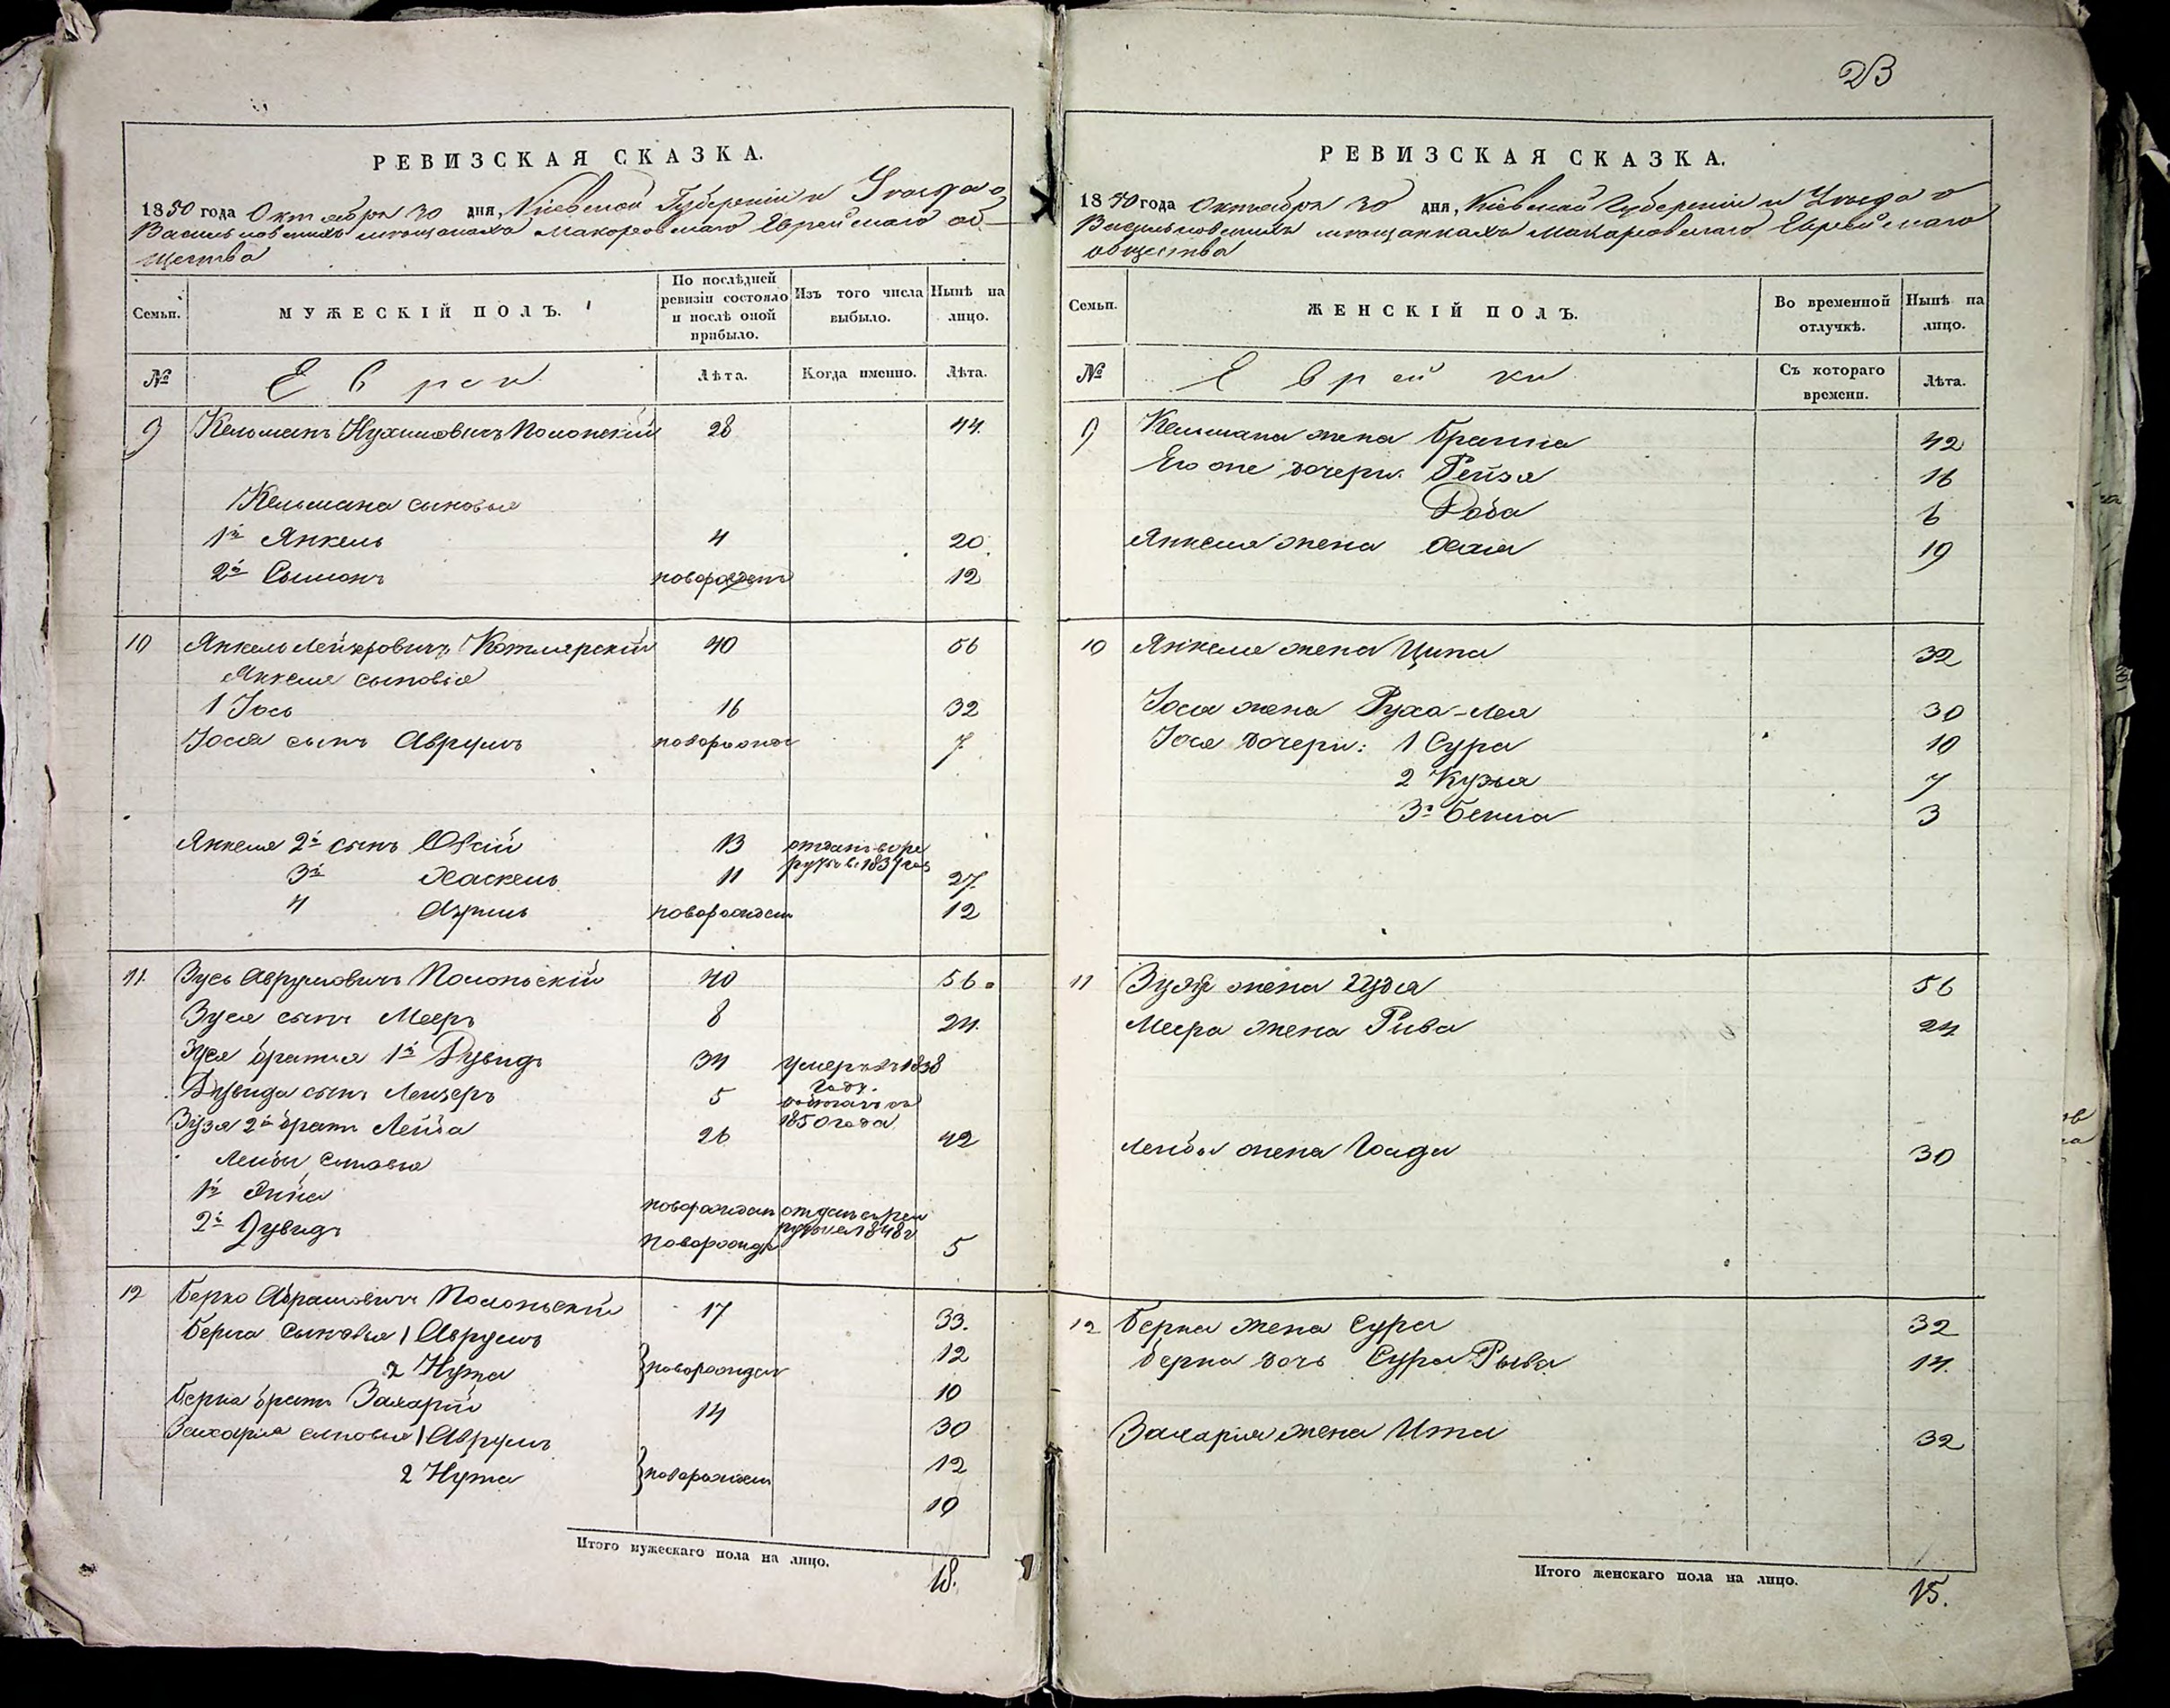 23
РЕВИЗСКАЯ СКАЗКА.
1850 года Октября 30 дня, Кіевской Губерніи и Уезда о
Васильковскихъ мещанахъ Макаровскаго Еврейскаго об-
щества
Семьи.
МУЖЕСКІЙ ПОЛЪ.
По послѣдней ревизіи состояло и послѣ оной прибыло.
Изъ того числа выбыло.
Нынѣ на лицо.
№
Евреи
Лѣта.
Когда именно.
Лѣта.
9 Кельманъ Нухимовичъ Полонскій 28 44.
Кельмана сыновья
1й Янкель 4 20
2й Сымонъ новорожден 12
10 Янкель Лейзеровичъ Котлярскій 40 56
Янкеля сыновья
1 Іось 16 32
Іося сынъ Аврумъ новорожден 7
Янкеля 2й сынъ 13 отданъ въ ре
круты въ 1837 год
3й Хаскель 11 27.
4 новорожден 12
11. Зусь Аврумовичъ Полоньскій 40 56.
Зуся сынъ Мееръ 8 24.
Зуся братья 1й Дувидъ 34 умеръ въ 1838
году.
Дувида сынъ Лейзеръ 5
1850 года
Зузя 2й братъ Лейба 26 42
Лейбы сыновья
1й новорожден отданъ въ рек
руты 1848 г
2й Дувидъ новорожд 5
12 Берко Абрамовичъ Полоньскій 17 33.
Берка сыновья 1 Аврумъ 12
2 Нута }новорожден 10
Берка братъ Захарій 14 30
Захарія сыновья 1 Аврумъ 12
2 Нута }новорожден 10
Итого мужескаго пола на лицо. 18.
РЕВИЗСКАЯ СКАЗКА.
1850 года Октября 30 дня, Кіевской Губерніи и Уезда о
Васильковскихъ мещанкахъ Макаровскаго Еврейскаго
общества
Семьи.
ЖЕНСКІЙ ПОЛЪ.
Во временной отлучкѣ.
Нынѣ на лицо.
№
Еврейки
Съ котораго времени.
Лѣта.
9 Кельмана жена 42
Его же дочери: Рейзя 16
Доба 6
Янкеля жена Хая 19
10 Янкеля жена Ципа 32
Іося жена Руха-Лея 30
Іося дочери: 1 Сура 10
2 Кузя 7
3 3
11 жена 56
Меера жена Рива 24
Лейбы жена 30
12 Берка жена Сура 32
Берка дочь Сура Рыва 14.
Захарія жена Ита 32
Итого женскаго пола на лицо. 15.